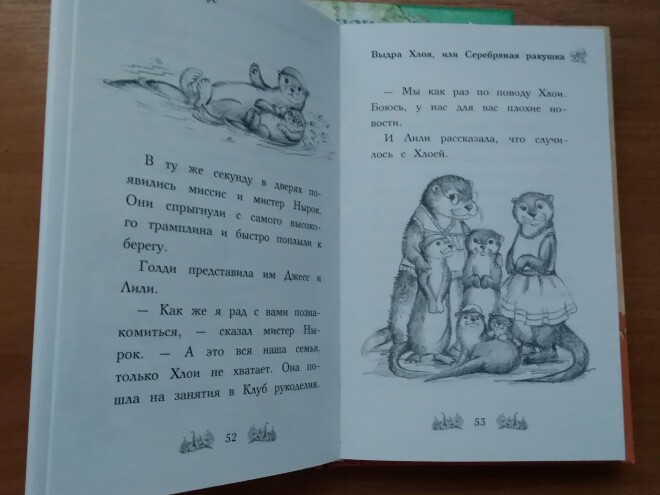 В ту же секунду в дверях по-
явились миссис и мистер Нырок.
Они спрыгнули с самого высоко-
го трамплина и быстро поплыли к
берегу.
Голди представила им Джесс и
Лили.
— Как же я рад с вами позна-
комиться, — сказал мистер Ны-
рок. — А это вся наша семья,
только Хлои не хватает. Она по-
шла на занятия в Клуб рукоделия.
52
Выдра Хлоя, или Серебряная ракушка
— Мы как раз по поводу Хлои.
Боюсь, у нас для вас плохие но-
вости.
И Лили рассказала, что случи-
лось с Хлоей.
53